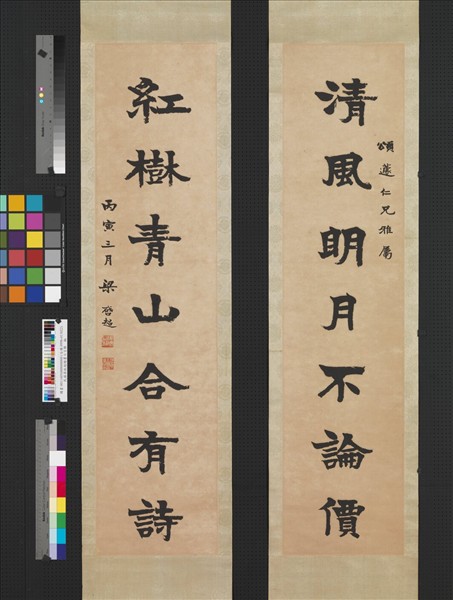 清風明月不論價
頌蓬仁兄雅屬
紅樹青山合有詩
丙寅三月 梁啓超